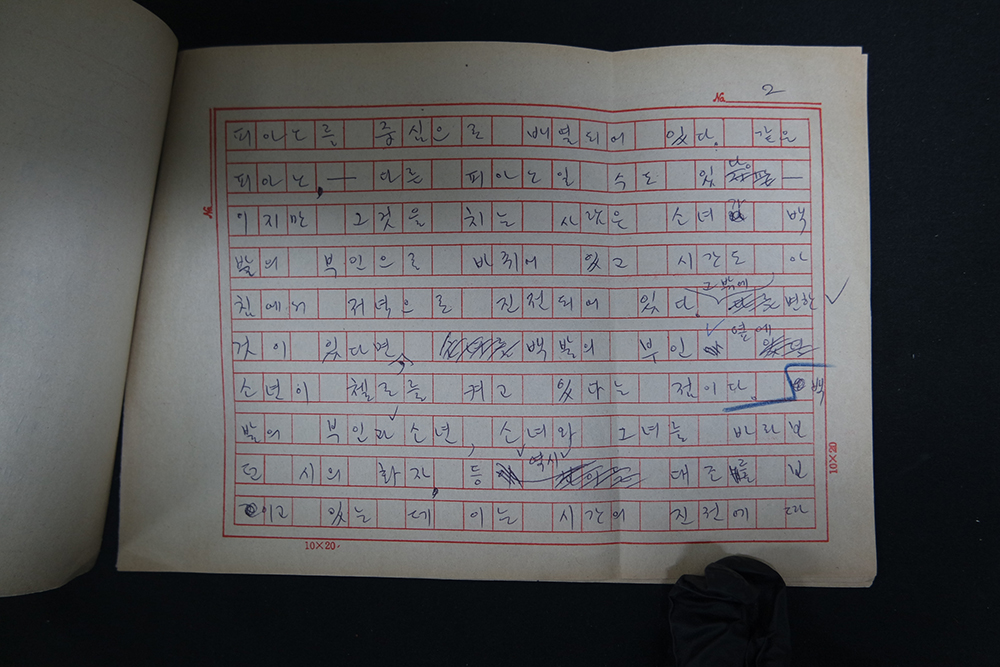 No. 2
피아노를 중심으로 배열되어 있다. 같은
피아노, — 다른 피아노일 수도 있다. —
No.
이지만 그것을 치는 사람은 소녀가 백
발의 부인으로 바뀌어 있고 시간도 아
침에서 저녁으로 진전되어 있다. 그 밖에 변한
것이 있다면, 백발의 부인 옆에
소년이 첼로를 켜고 있다는 점이다. 백
발의 부인과 소년, 소녀와 그녀를 바라보
던 시의 화자, 등 역시 대조를 보
이고 있는데 이는 시간의 진전에 따
10×20
10×20